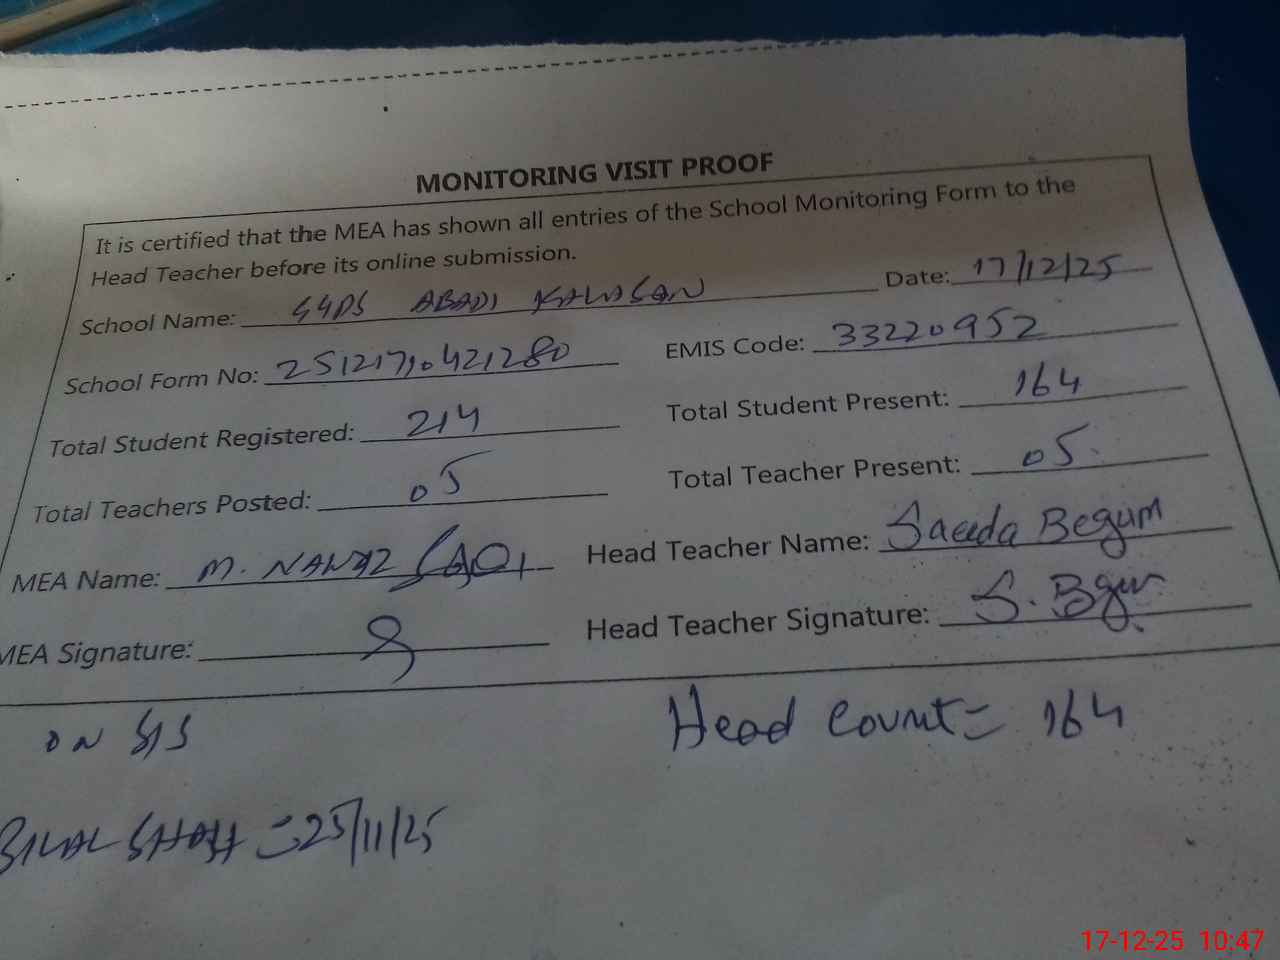 MONITORING VISIT PROOF
It is certified that the MEA has shown all entries of the School Monitoring Form to the
Head Teacher before its online submission.
School Name: GGPS ABADI KALASAN Date: 17/12/25
School Form No: 25121710421280 EMIS Code: 33220952
Total Student Registered: 214 Total Student Present: 164
Total Teachers Posted: 05 Total Teacher Present: 05
MEA Name: M. NAWAZ Head Teacher Name: Saeeda Begum
MEA Signature: Head Teacher Signature: S. Bgum
ON SIS Head Count = 164
BILAL SHAH = 25/11/25
17-12-25 10:47